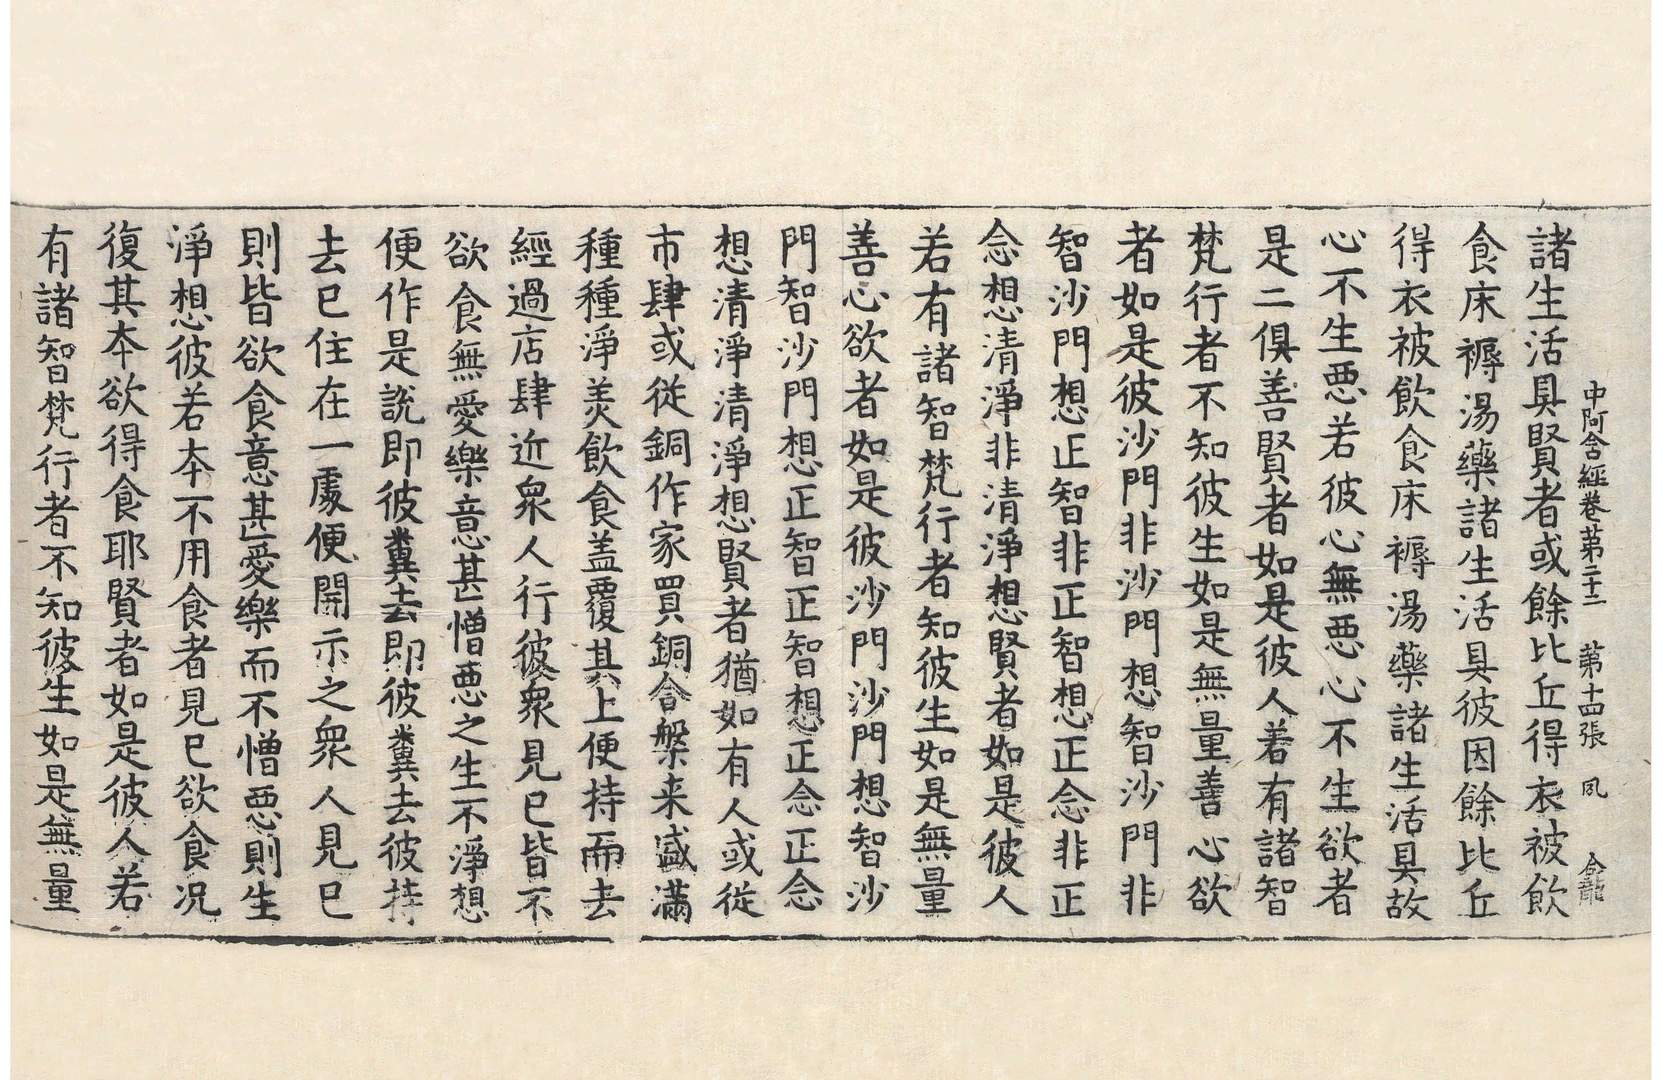 中阿含經卷第二十二 第十四張 夙
諸生活具賢者或餘比丘得衣被飲
食床褥湯藥諸生活具彼因餘比丘
得衣被飲食床褥湯藥諸生活具故
心不生悪若彼心無悪心不生欲者
是二俱善賢者如是彼人若有諸智
梵行者不知彼生如是無量善心欲
者如是彼沙門非沙門想智沙門非
智沙門想正智非正智想正念非正
念想清淨非清淨想賢者如是彼人
若有諸智梵行者知彼生如是無量
善心欲者如是彼沙門沙門想智沙
門智沙門想正智正智想正念正念
想清淨清淨想賢者猶如有人或従
市肆或従銅作家買銅合槃来盛滿
種種淨羙飲食盖覆其上便持而去
經過店肆近衆人行彼衆見已皆不
欲食無愛樂意甚憎悪之生不淨想
便作是說即彼糞去即彼糞去彼持
去已住在一處便開示之衆人見已
則皆欲食意甚愛樂而不憎悪則生
淨想彼若本不用食者見已欲食况
復其本欲得食耶賢者如是彼人若
有諸智梵行者不知彼生如是無量